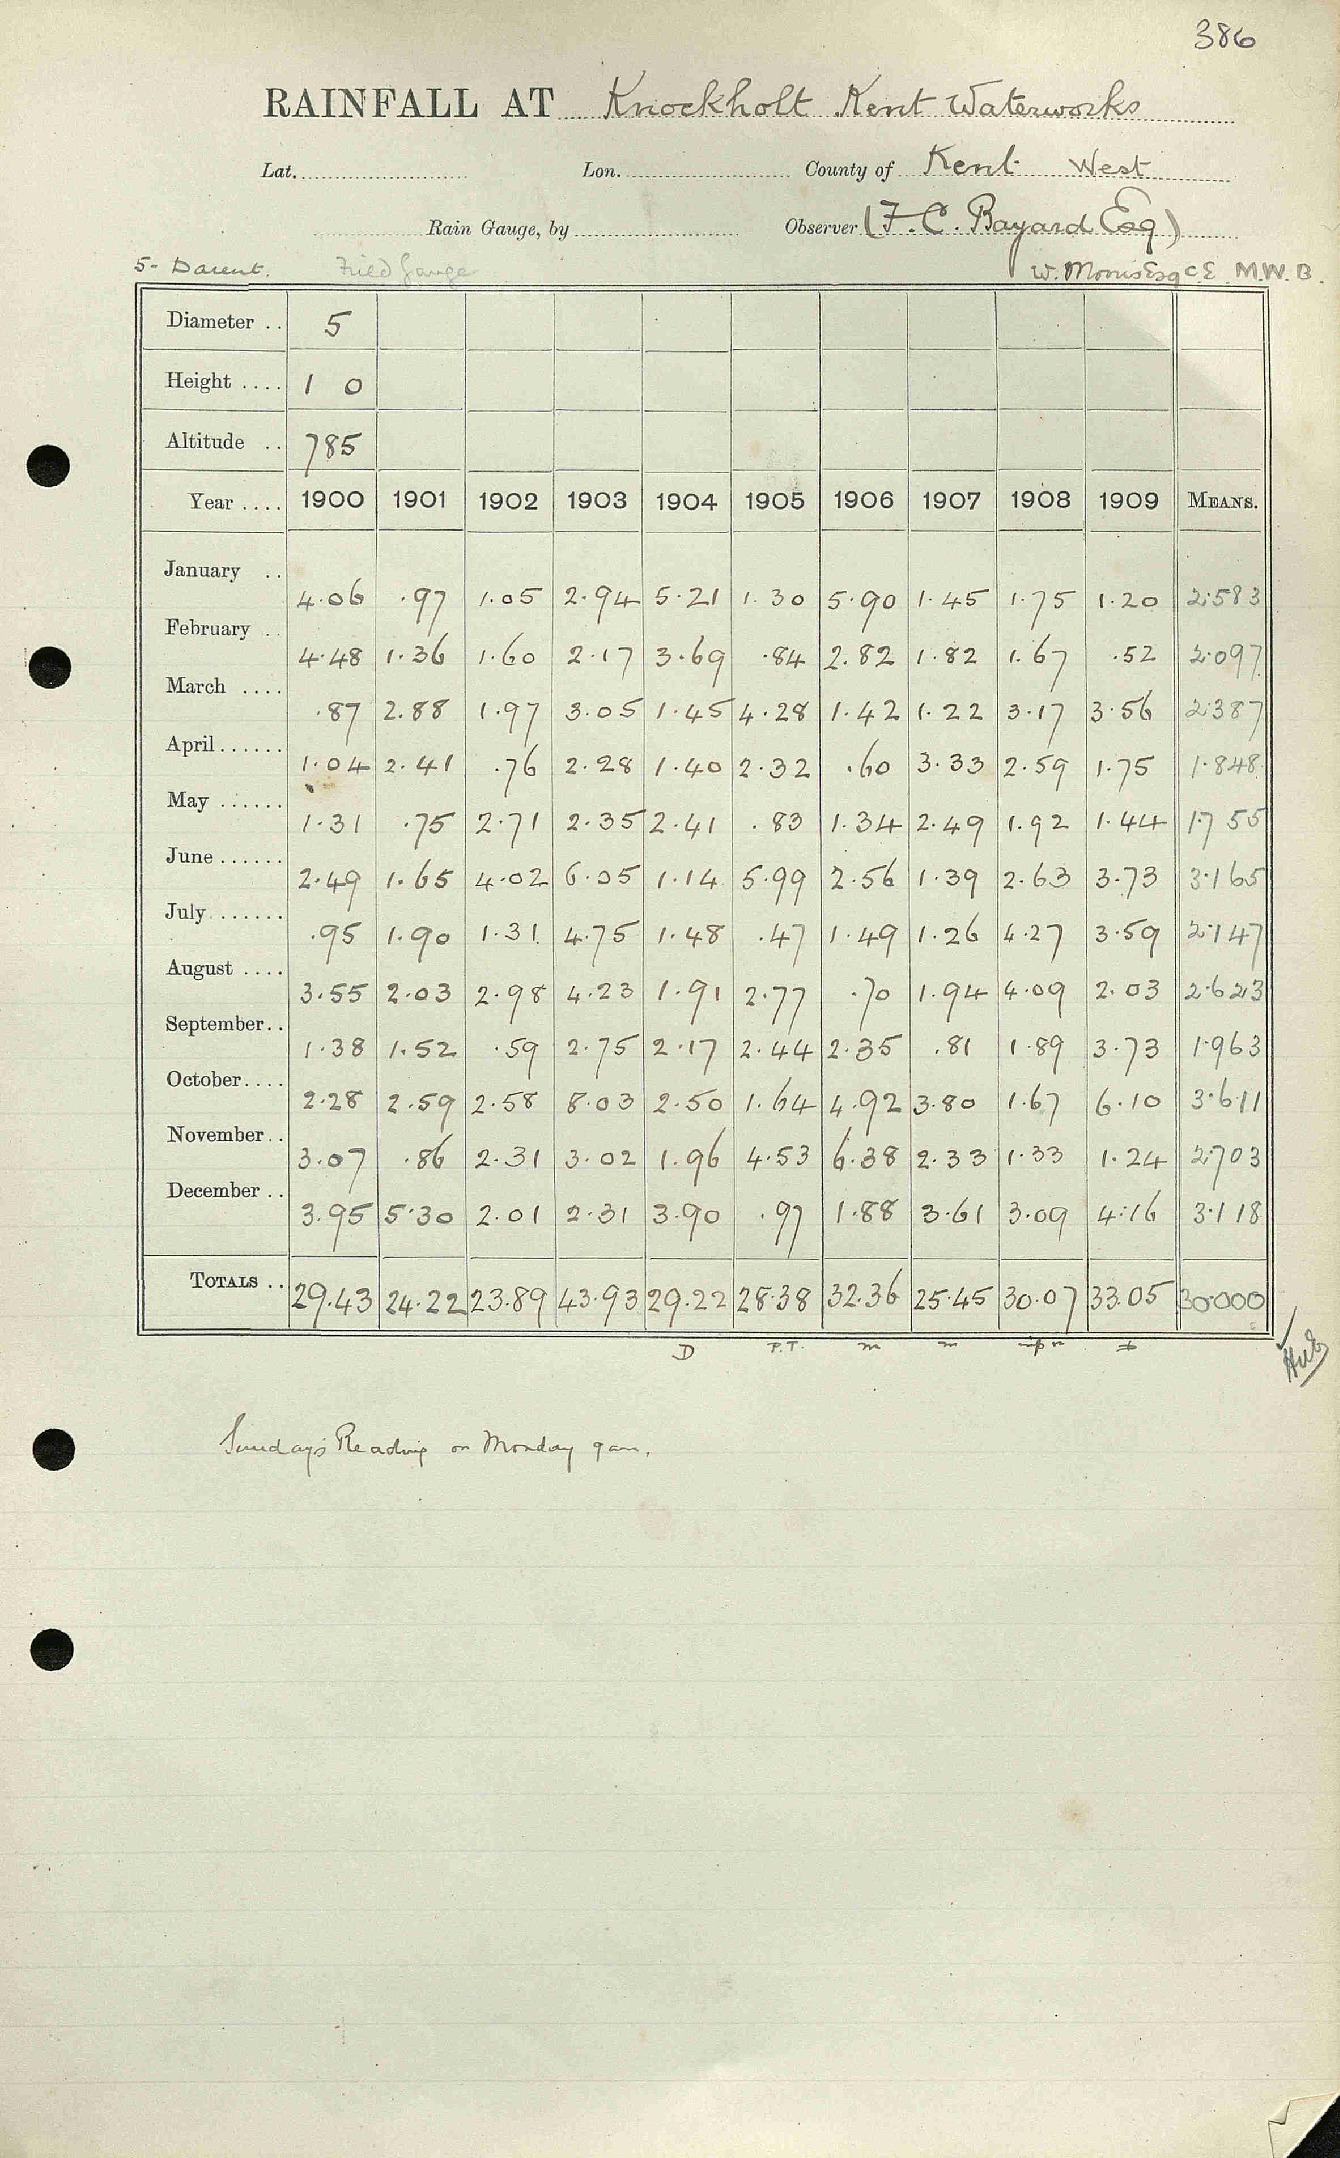 386
RAINFALL AT Knockholt Kent Waterworks
Lat. Lon. County of Kent West
Rain Gauge, by Observer (F. C. Bayard Esq)
5- Darent. Field Gauge W. Morris Esq C.E. M.W.B.
Diameter .. 5
Height .... 1 0
Altitude .. 785
Year .... 1900 1901 1902 1903 1904 1905 1906 1907 1908 1909 MEANS.
January .. 4.06 .97 1.05 2.94 5.21 1.30 5.90 1.45 1.75 1.20 2.583
February .. 4.48 1.36 1.60 2.17 3.69 .84 2.82 1.82 1.67 .52 2.097
March .... .87 2.88 1.97 3.05 1.45 4.28 1.42 1.22 3.17 3.56 2.387
April...... 1.04 2.41 .76 2.28 1.40 2.32 .60 3.33 2.59 1.75 1.848
May ...... 1.31 .75 2.71 2.35 2.41 .83 1.34 2.49 1.92 1.44 1.755
June ...... 2.49 1.65 4.02 6.05 1.14 5.99 2.56 1.39 2.63 3.73 3.165
July....... .95 1.90 1.31 4.75 1.48 .47 1.49 1.26 4.27 3.59 2.147
August .... 3.55 2.03 2.98 4.23 1.91 2.77 .70 1.94 4.09 2.03 2.623
September.. 1.38 1.52 .59 2.75 2.17 2.44 2.35 .81 1.89 3.73 1.963
October.... 2.28 2.59 2.58 8.03 2.50 1.64 4.92 3.80 1.67 6.10 3.611
November.. 3.07 .86 2.31 3.02 1.96 4.53 6.38 2.33 1.33 1.24 2.703
December .. 3.95 5.30 2.01 2.31 3.90 .97 1.88 3.61 3.09 4.16 3.118
TOTALS .. 29.43 24.22 23.89 43.93 29.22 28.38 32.36 25.45 30.07 33.05 30.000
D P.T. m m
Sundays Reading on Monday 9 am.